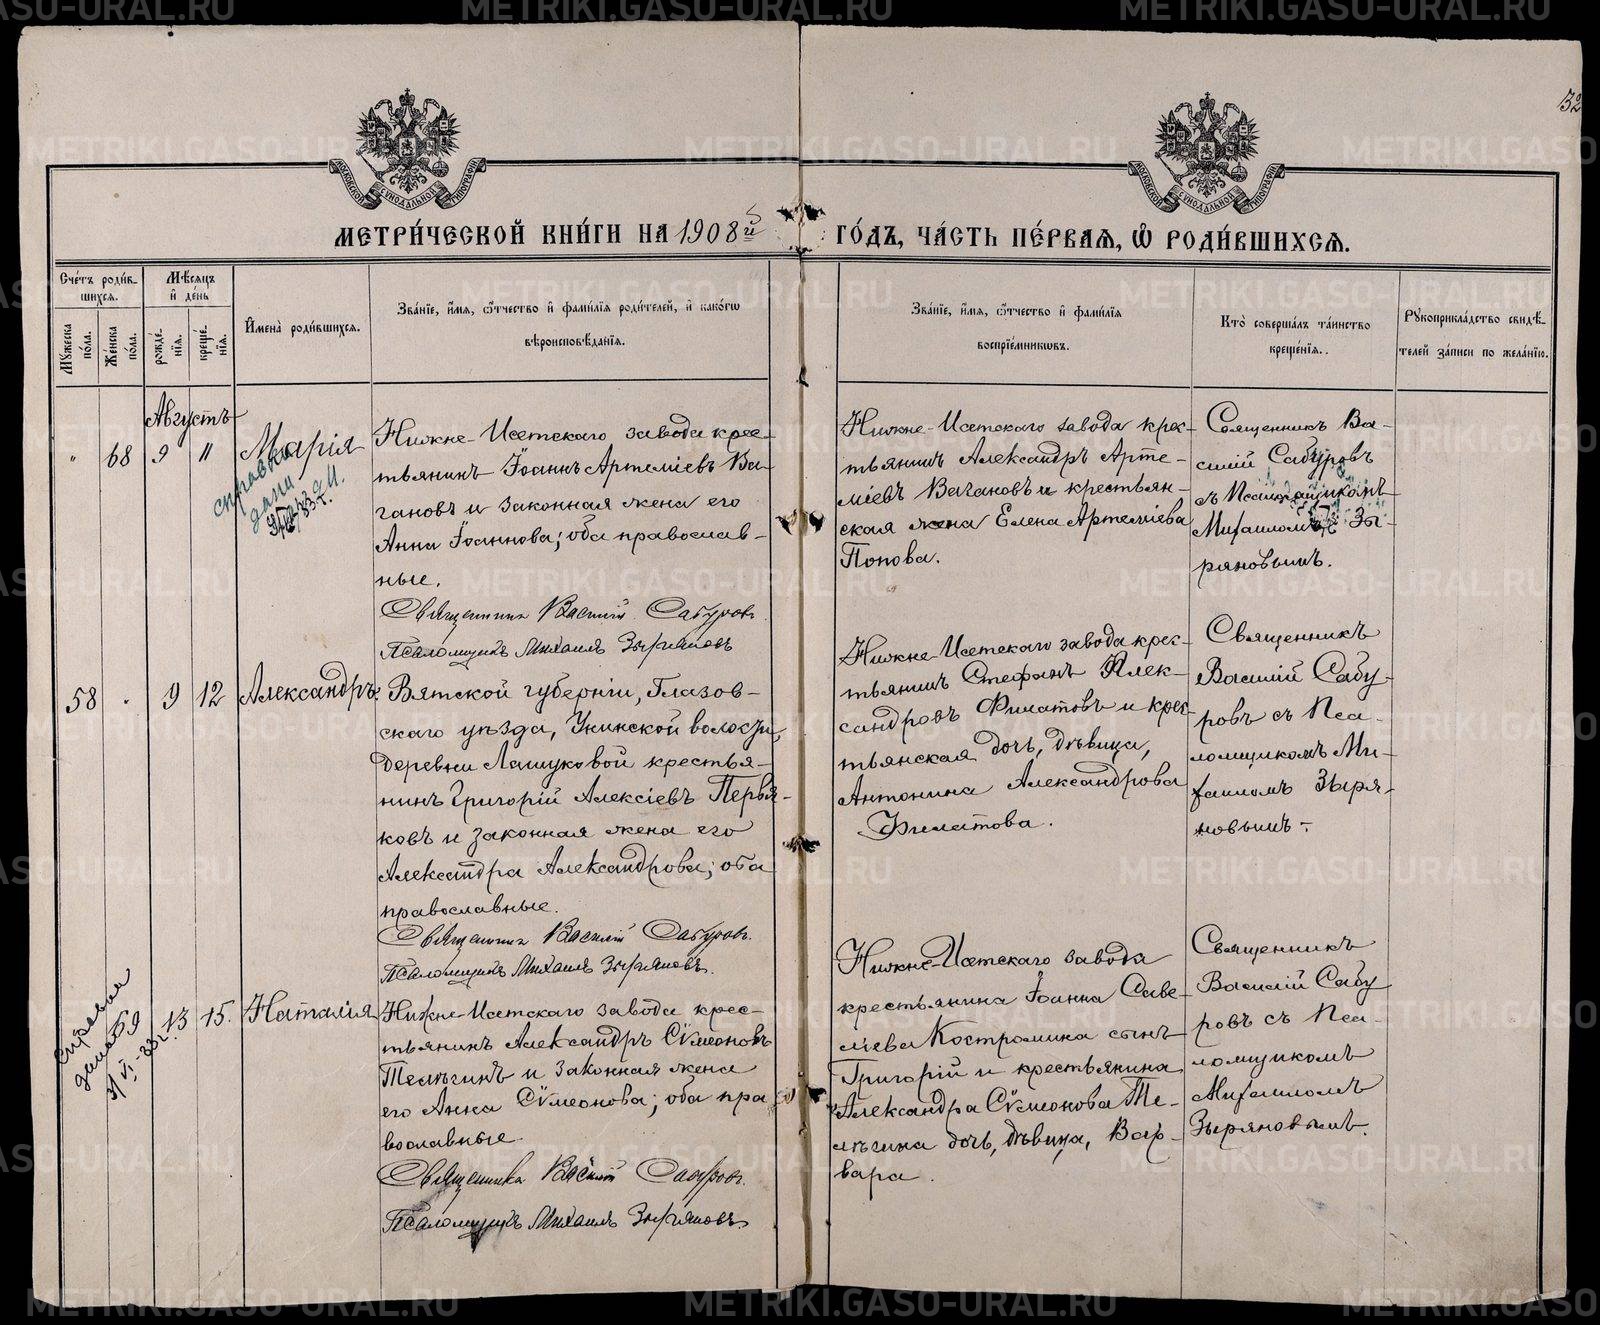 METRIKI.GASO-URAL.RU
32
МОСКОВСКОЙ СѴНОДАЛЬНОЙ ТИПОГРАФІИ
МОСКОВСКОЙ СѴНОДАЛЬНОЙ ТИПОГРАФІИ
МЕТРИ́ЧЕСКОЙ КНИ́ГИ НА 1908й ГО́ДЪ, ЧА́СТЬ ПЕ́РВАЯ, Ѡ РОДИ́ВШИХСЯ.
Сче́тъ роди́в-
шихся.
Мꙋ́жеска по́ла.
Же́нска по́ла.
Мѣ́сяцъ
и де́нь
рожде́-
нія.
креще́-
нія.
Имена̀ роди́вшихся.
Зва́ніе, и́мя, ѻ́тчество и фами́лія роди́телей, и како́гѡ
вѣроисповѣ́данія.
Зва́ніе, и́мя, ѻ́тчество и фами́лія
воспріе́мникѡвъ.
Кто̀ соверша́лъ та́инство
креще́нія.
Рꙋкоприкла́дство свидѣ́-
телей за́писи по жела́нію.
Августъ
" 68 9 11 Марія
справка
дана
Нижне-Исетскаго завода крес-
тьянинъ Іоаннъ Артеміевъ Ва-
гановъ и законная жена его
Анна Іоаннова; оба православ-
ные.
Священникъ Василій Сабуровъ
Псаломщикъ Михаилъ Зыряновъ
Нижне-Исетскаго завода крес-
тьянинъ Александръ Арте-
міевъ Вагановъ и крестьян-
ская жена Елена Артеміева
Попова.
Священникъ Ва-
силій Сабуровъ
съ Псаломщикомъ
Михаиломъ Зы-
ряновымъ.
58 . 9 12 Александръ
Вятской губерніи, Глазов-
скаго уѣзда, Укинской волости,
деревни Лашуковой крестья-
нинъ Григорій Алексіевъ Первя-
ковъ и законная жена его
Александра Александрова; оба
православные.
Священникъ Василій Сабуровъ.
Псаломщикъ Михаилъ Зыряновъ.
Нижне-Исетскаго завода крес-
тьянинъ Стефанъ Алек-
сандровъ Филатовъ и крес-
тьянская дочь, дѣвица,
Антонина Александрова
Филатова.
Священникъ
Василій Сабу-
ровъ съ Пса-
ломщикомъ Ми-
хаиломъ Зыря-
новымъ.
справка
дана 59
3/VI-33 г.
13 15. Наталія
Нижне-Исетскаго завода крес-
тьянинъ Александръ Сѵмеоновъ
Телѣгинъ и законная жена
его Анна Сѵмеонова; оба пра
вославные.
Священникъ Василій Сабуровъ.
Псаломщикъ Михаилъ Зыряновъ.
Нижне-Исетскаго завода
крестьянина Іоанна Саве-
ліева Костромина сынъ
Григорій и крестьянина
Александра Сѵмеонова Те-
лѣгина дочь, дѣвица, Вар-
вара.
Священникъ
Василій Сабу
ровъ съ Пса-
ломщикомъ
Михаиломъ
Зыряновымъ.